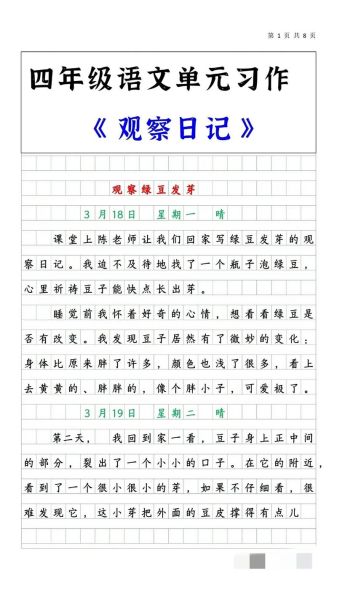 第 1 页 共 8 页
四年级语文单元习作
《观察日记》
观察绿豆发芽
3月18日 星期一 晴
课堂上陈老师让我们回家写绿豆发芽的观
察日记。我迫不及待地找了一个瓶子泡绿豆，
心里祈祷豆子能快点长出芽。
睡觉前我怀着好奇的心情，想看看绿豆是
否有改变。我发现豆子居然有了微妙的变化：
身体比原来胖了许多，颜色也浅了很多，看上
去黄黄的、胖胖的，像个胖小子，可爱极了。
3月19日 星期二 晴
第二天， 我回到家一看，豆子身上正中间
的部分，裂出了一个小小的口子。在它的附近，
看到了一个很小很小的芽，如果不仔细看，很
难发现它，这小芽把外面的豆皮撑得有点儿